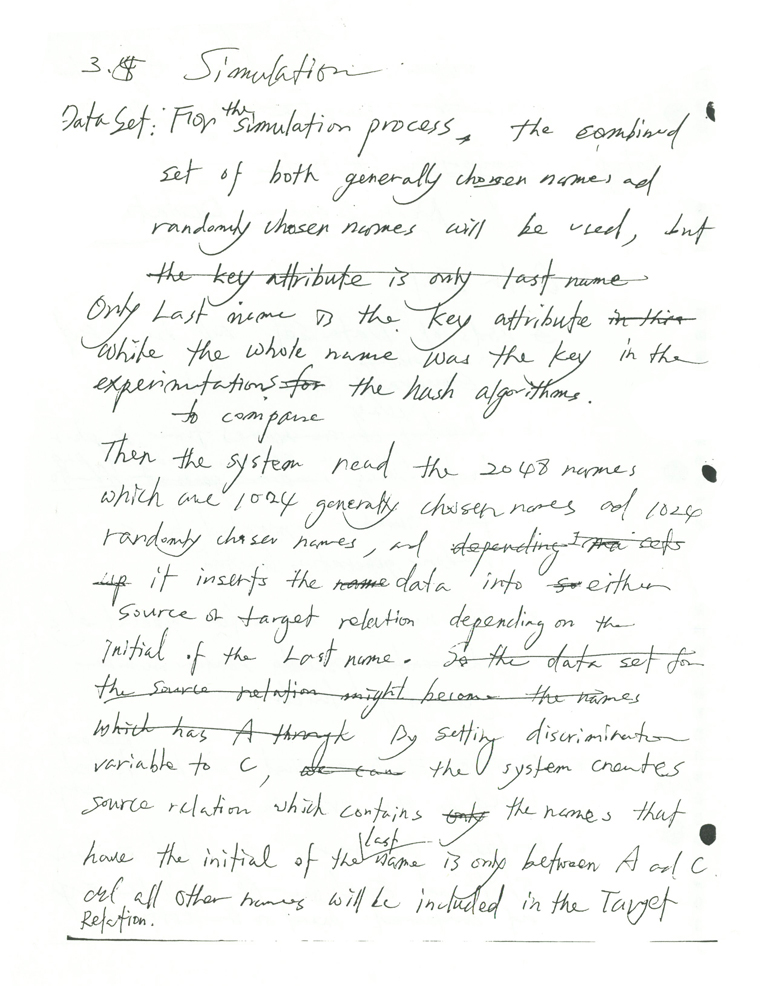 3.4 Simulation
Data Set: For the simulation process, the combined
set of both generally chosen names ad
randomly chosen names will be used, but
the key attribute is only last name
Only Last name is the key attribute in this
while the whole name was the key in the
experimutations for the hash algorithms.
to compare
Then the system read the 2048 names
which are 1024 generally chosen names ad 1024
randomly chosen names, ad depending sets
up it inserts the name data into so either
Source or target relation depending on the
Initial of the Last name. So the data set for
the source relation might become the names
which has A through By setting discrimination
variable to C, we can the system creates
source relation which contains only the names that
have the initial of the last name is only between A ad C
ad all other names will be included in the Target
Relation.